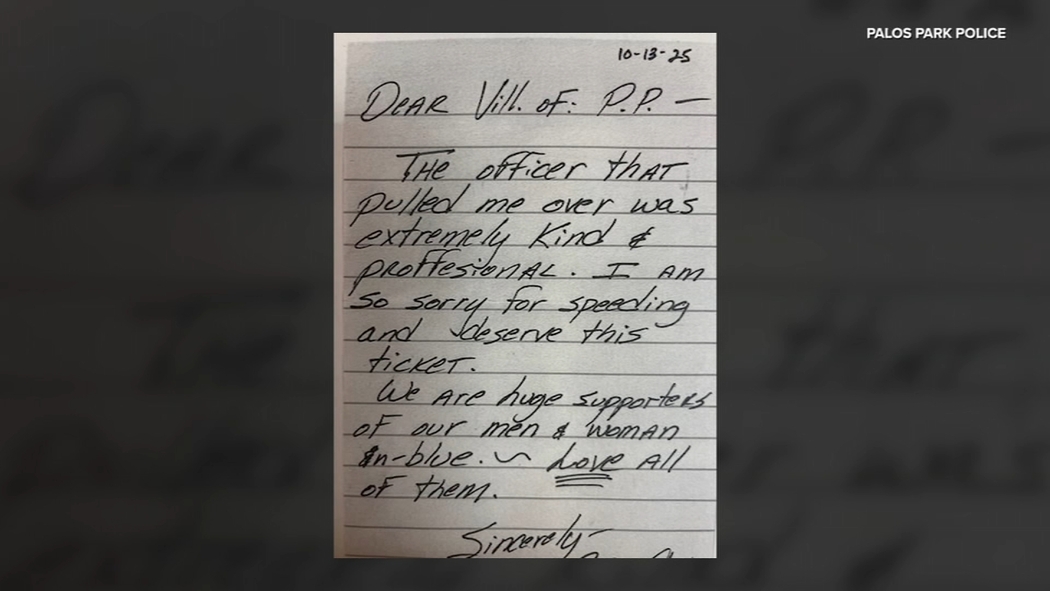 PALOS PARK POLICE
10-13-25
DEAR Vill. of: P.P. —
THE officer thAT
pulled me over was
extremely Kind &
proffesionAL. I AM
so sorry for speeding
and deserve this
ticket.
We Are huge supporters
of our men & womAn
in-blue. ~ Love All
of them.
Sincerely-